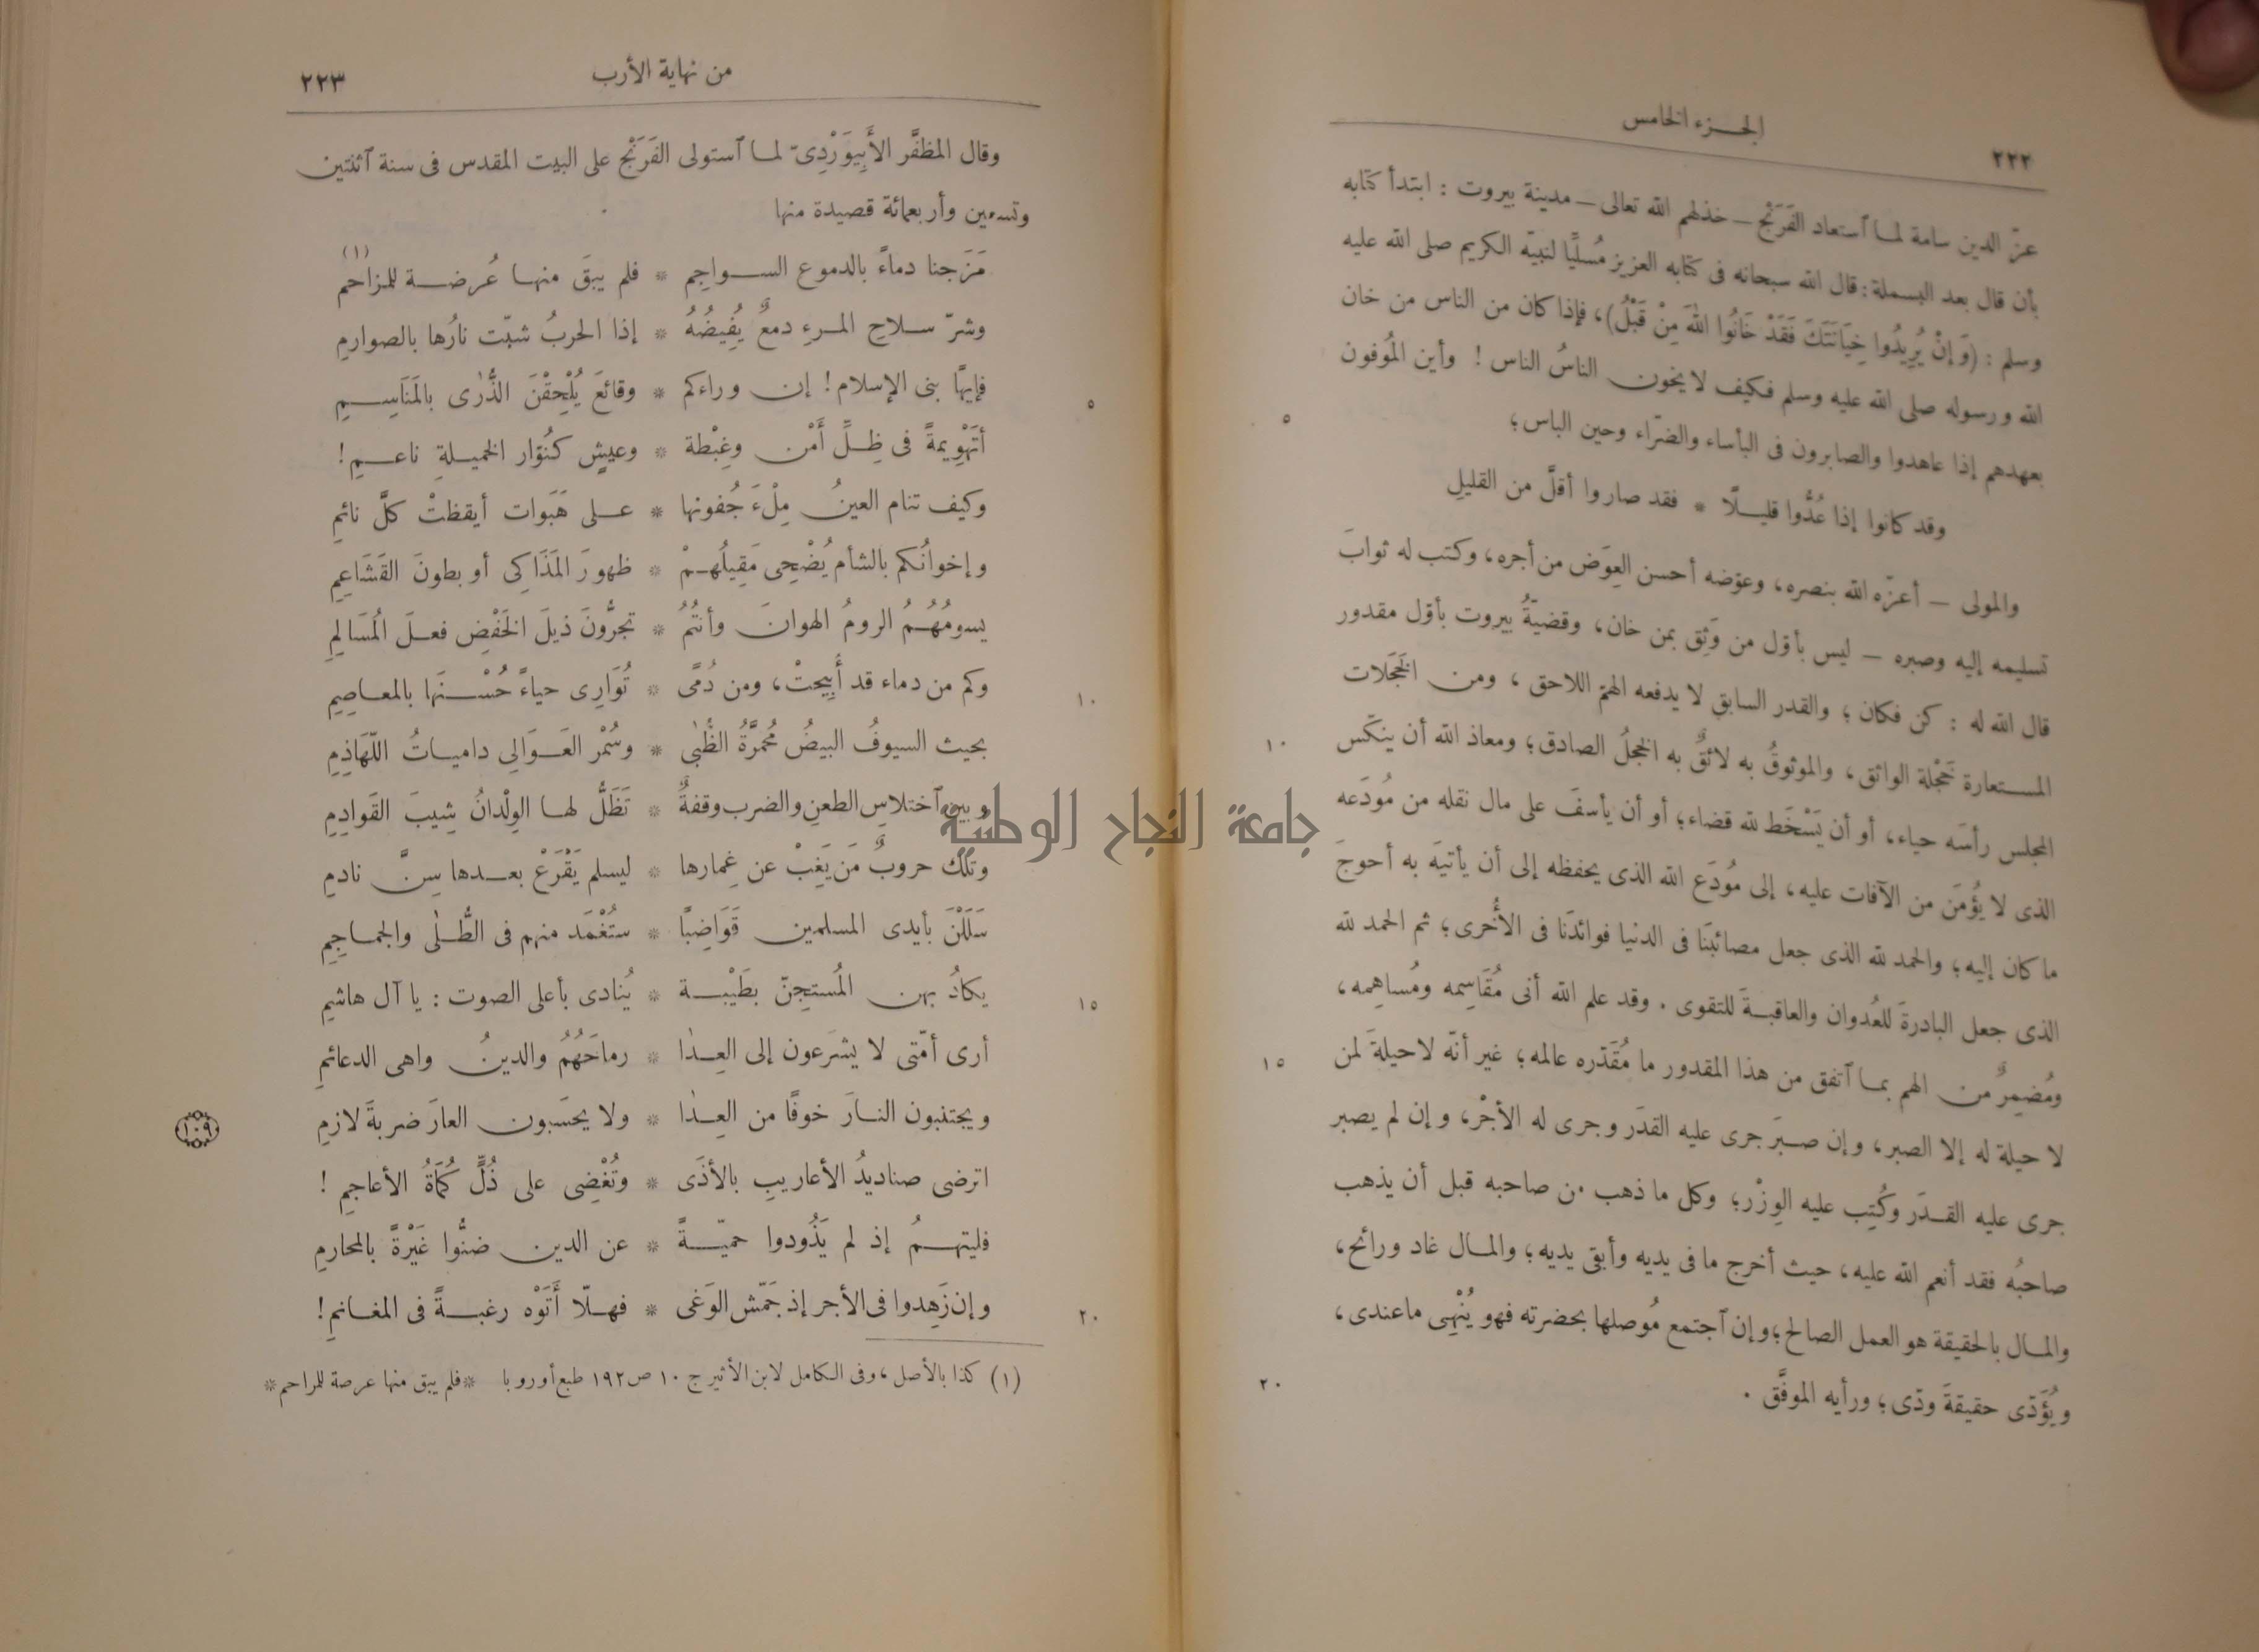 ٢٢٢
الجزء الخامس
عزّ الدين سامة لما آستعاد الفَرَنْج — خذلهم الله تعالى — مدينة بيروت : ابتدأ كتابه
بأن قال بعد البسملة : قال الله سبحانه فى كتابه العزيز مُسلِّيًا لنبيّه الكريم صلى الله عليه
وسلم : (وَإِنْ يُرِيدُوا خِيَانَتَكَ فَقَدْ خَانُوا اللهَ مِنْ قَبْلُ)، فإذا كان من الناس من خان
الله ورسوله صلى الله عليه وسلم فكيف لا يخون الناسُ الناس ! وأين المُوفون
٥
بعهدهم إذا عاهدوا والصابرون فى البأساء والضرّاء وحين الباس؛
وقد كانوا إذا عُدُّوا قليلًا * فقد صاروا أقلَّ من القليلِ
والمولى — أعزّه الله بنصره، وعوّضه أحسن العِوَض من أجره، وكتب له ثوابَ
تسليمه إليه وصبره — ليس بأوّل من وَثِق بمن خان، وقضيّةُ بيروت بأوّل مقدور
قال الله له : كن فكان؛ والقدر السابق لا يدفعه الهمّ اللاحق، ومن الخَجَلات
المستعارة خَجْلة الواثق، والموثوقُ به لائقٌ به الخجلُ الصادق؛ ومعاذ الله أن ينكّس
١٠
المجلس رأسَه حياء، أو أن يَسْخَط لله قضاء؛ أو أن يأسفَ على مال نقله من مُودَعه
الذى لا يُؤمَن من الآفات عليه، إلى مُودَع الله الذى يحفظه إلى أن يأتيَه به أحوجَ
ما كان إليه؛ والحمد لله الذى جعل مصائبَنا فى الدنيا فوائدَنا فى الأُخرى؛ ثم الحمد لله
الذى جعل البادرةَ للعُدوان والعاقبةَ للتقوى . وقد علم الله أنى مُقَاسِمه ومُساهِمه،
ومُضمِرٌ من الهم بما آتفق من هذا المقدور ما مُقَدِّره عالمه؛ غير أنّه لا حيلةَ لمن
١٥
لا حيلة له إلا الصبر، وإن صبَرَ جرى عليه القدَر وجرى له الأجْر، وإن لم يصبر
جرى عليه القدَر وكُتِب عليه الوِزْر؛ وكل ما ذهب من صاحبه قبل أن يذهب
صاحبُه فقد أنعم الله عليه، حيث أخرج ما فى يديه وأبقى يديه؛ والمال غاد ورائح،
والمال بالحقيقة هو العمل الصالح؛ وإن آجتمع مُوصلها بحضرته فهو يُنْهِى ما عندى،
ويُؤَدّى حقيقةَ ودّى؛ ورأيه الموفَّق .
٢٠
من نهاية الأرب
٢٢٣
وقال المظفَّر الأَبِيوَرْدِىّ لما آستولى الفَرَنْج على البيت المقدس فى سنة آثنتين
وتسعين وأربعمائة قصيدة منها
مَزَجنا دماءً بالدموع السواجِمِ * فلم يبقَ منها عُرضة للمزاحم (١)
وشرّ سلاحِ المرءِ دمعٌ يُفِيضُهُ * إذا الحربُ شبّت نارُها بالصوارمِ
فإيهًا بنى الإسلام ! إن وراءكم * وقائعَ يُلْحِقْنَ الذُّرَى بالمَنَاسِمِ
٥
أتَهْوِيمةً فى ظِلِّ أَمْن وغِبْطة * وعيشٍ كنُوّار الخميلةِ ناعمِ !
وكيف تنام العينُ مِلْءَ جُفونها * على هَبَوات أيقظتْ كلَّ نائمِ
وإخوانُكم بالشأم يُضْحِى مَقِيلُهمْ * ظهورَ المَذَاكِى أو بطونَ القَشَاعِمِ
يسومُهُمُ الرومُ الهوانَ وأنتُمُ * تجرُّونَ ذيلَ الخَفْضِ فعلَ المُسَالِمِ
وكم من دماء قد أُبيحتْ، ومن دُمًى * تُوَارِى حياءً حُسْنَها بالمعاصِمِ
١٠
بحيث السيوفُ البيضُ مُحمَرَّةُ الظُّبَى * وسُمْر العَوَالِى دامياتُ اللّهَاذِمِ
وبين آختلاسِ الطعنِ والضرب وقفةٌ * تَظَلُّ لها الوِلْدانُ شِيبَ القَوادِمِ
وتلك حروبٌ مَن يَغِبْ عن غِمارها * ليسلم يَقْرَعْ بعدها سِنَّ نادمِ
سَلَلْنَ بأيدى المسلمين قَوَاضِبًا * ستُغْمَد منهم فى الطُّلَى والجماجِمِ
يكادُ بهن المُستجِنّ بطَيْبة * يُنادى بأعلى الصوت : يا آل هاشمِ
١٥
أرى أمّتى لا يشرَعون إلى العِدَا * رماحَهُمُ والدينُ واهى الدعائمِ
ويجتنبون النارَ خوفًا من العِدَا * ولا يحسَبون العارَ ضربةَ لازمِ
١٠٩
اترضى صناديدُ الأعاريبِ بالأذَى * وتُغْضِى على ذُلٍّ كُمَاةُ الأعاجمِ !
فليتهمُ إذ لم يَذُودوا حميّةً * عن الدين ضنُّوا غَيْرةً بالمحارمِ
وإن زَهِدوا فى الأجر إذ حَمَّش الوَغَى * فهلّا أتَوْه رغبةً فى المغانمِ !
٢٠
(١) كذا بالأصل، وفى الكامل لابن الأثير ج ١٠ ص ١٩٢ طبع أوروبا *فلم يبق منها عرصة للمراحم*
جامعة النجاح الوطنية